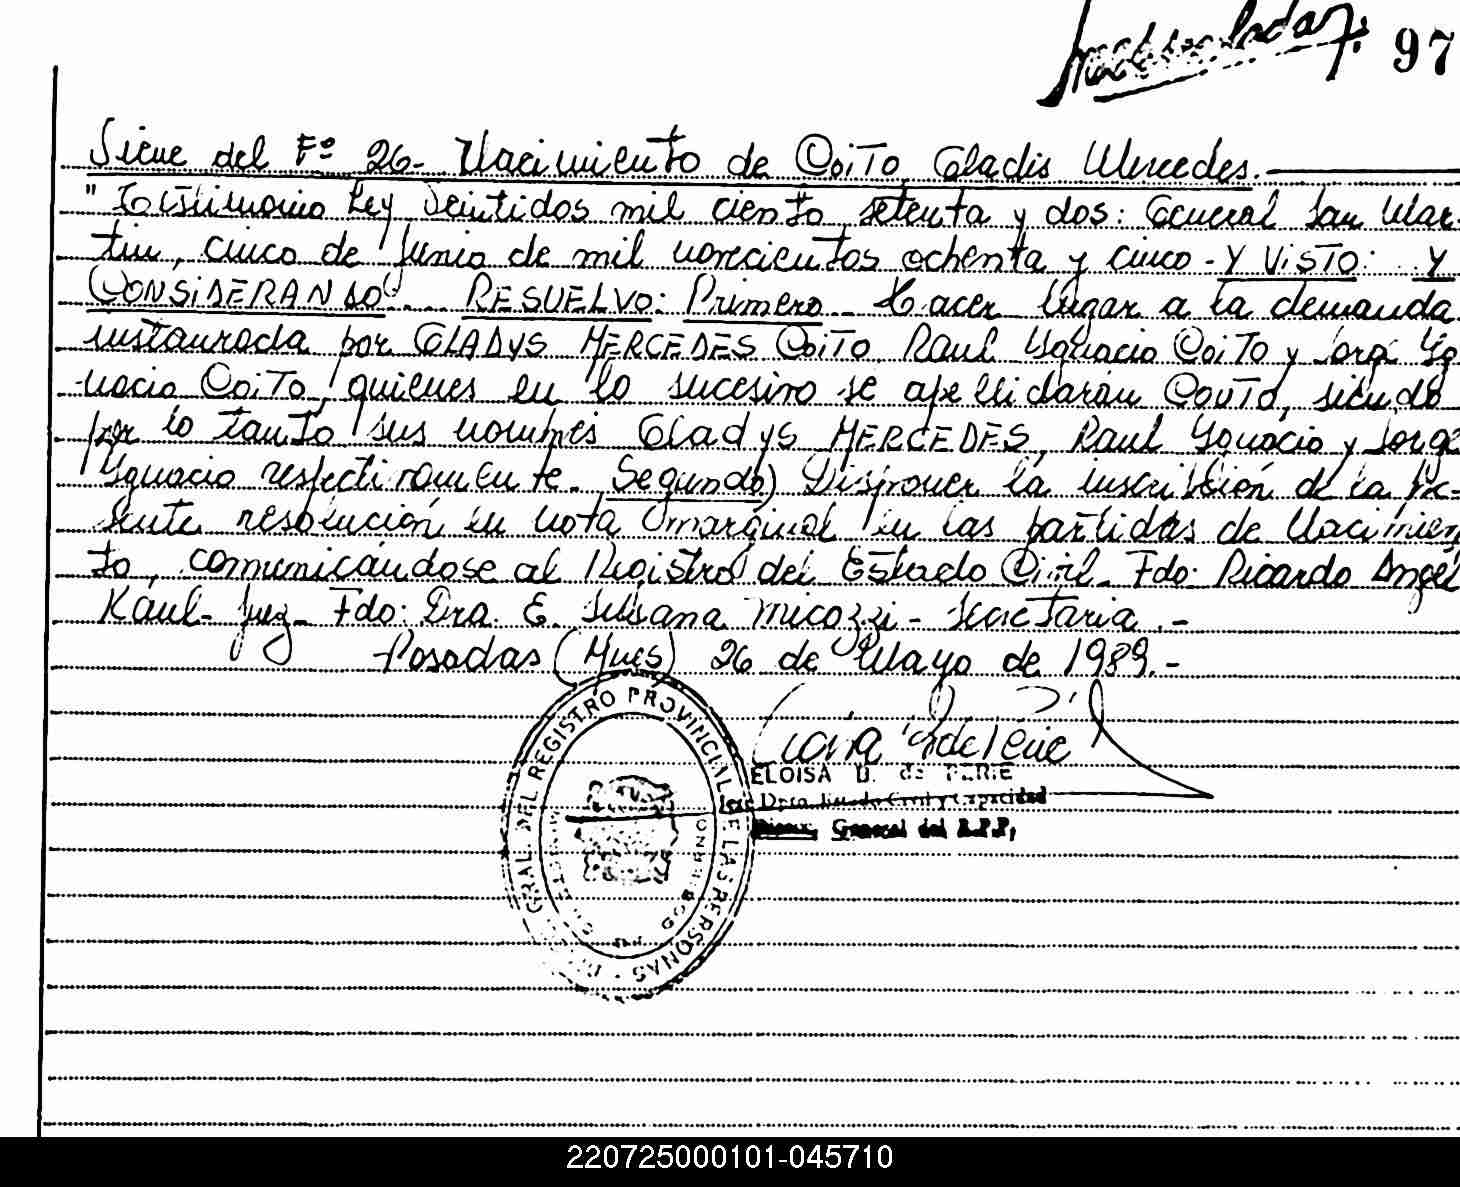 97
Sigue del Fº 26- Nacimiento de Coito, Gladis Mercedes.
"Testimonio Ley Veintidos mil ciento setenta y dos: General San Mar-
tin, cinco de Junio de mil novecientos ochenta y cinco - Y VISTO: Y
CONSIDERANDO... RESUELVO: Primero- Hacer lugar a la demanda
instaurada por GLADYS MERCEDES COITO, Raul Ygnacio Coito y Jorge Yg
nacio Coito, quienes en lo sucesivo se apellidarán Couto, siendo
por lo tanto sus nombres Gladys MERCEDES, Raul Ygnacio y Jorge
Ygnacio respectivamente. Segundo) Disponer la inscripción de la pre-
sente resolución en nota marginal en las partidas de Nacimien
to, comunicándose al Registro del Estado Civil. Fdo: Ricardo Angel
Kaul- Juez- Fdo: Dra. E. Susana Micozzi - Secretaria.-
Posadas (Mnes) 26 de Mayo de 1989.-
ELOISA B. de PERIE
Jefe Dpto. Estado Civil y Capacidad
General del R.P.P.
GRAL. DEL REGISTRO PROVINCIAL DE LAS PERSONAS
220725000101-045710